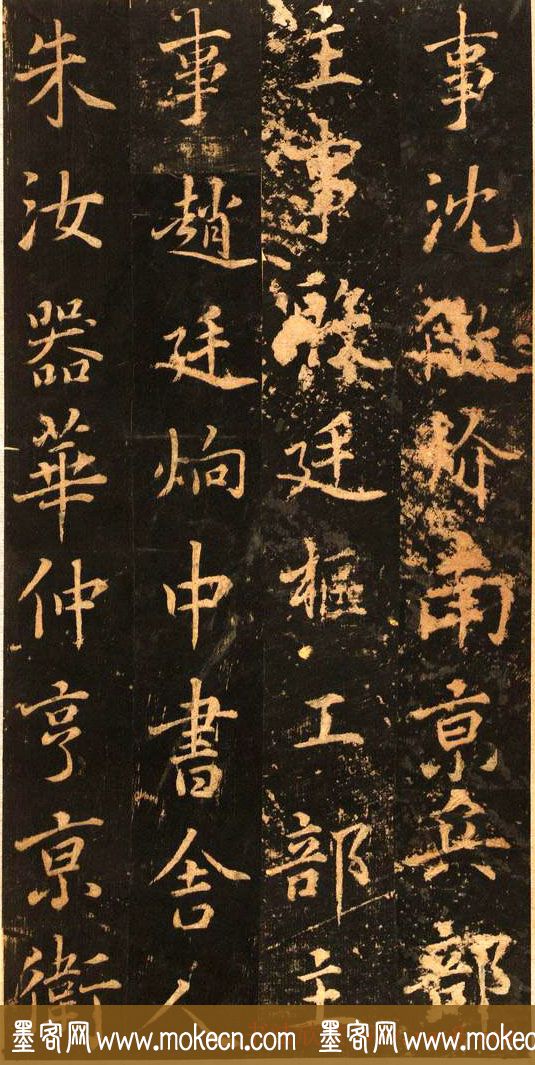 事沈玠南京兵部
主事廷樞工部主
事趙廷炯中書舍人
朱汝器華仲亨京衛
墨客网 www.mokecn.com 墨客网 www.mokecn.com